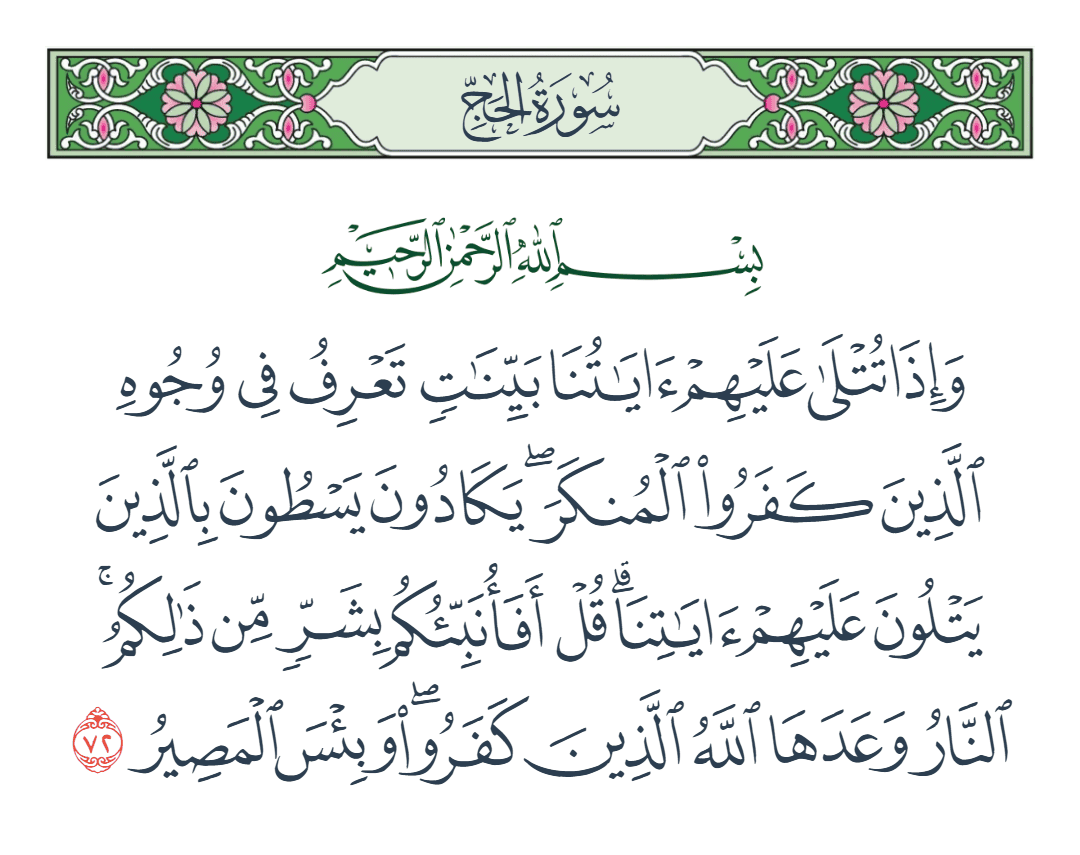 سُورَةُ الحَجِّ
بِسْمِ ٱللَّهِ ٱلرَّحْمَٰنِ ٱلرَّحِيمِ
وَإِذَا تُتْلَىٰ عَلَيْهِمْ ءَايَٰتُنَا بَيِّنَٰتٍ تَعْرِفُ فِى وُجُوهِ
ٱلَّذِينَ كَفَرُوا۟ ٱلْمُنكَرَ ۖ يَكَادُونَ يَسْطُونَ بِٱلَّذِينَ
يَتْلُونَ عَلَيْهِمْ ءَايَٰتِنَا ۗ قُلْ أَفَأُنَبِّئُكُم بِشَرٍّ مِّن ذَٰلِكُمُ ۚ
ٱلنَّارُ وَعَدَهَا ٱللَّهُ ٱلَّذِينَ كَفَرُوا۟ ۖ وَبِئْسَ ٱلْمَصِيرُ ٧٢